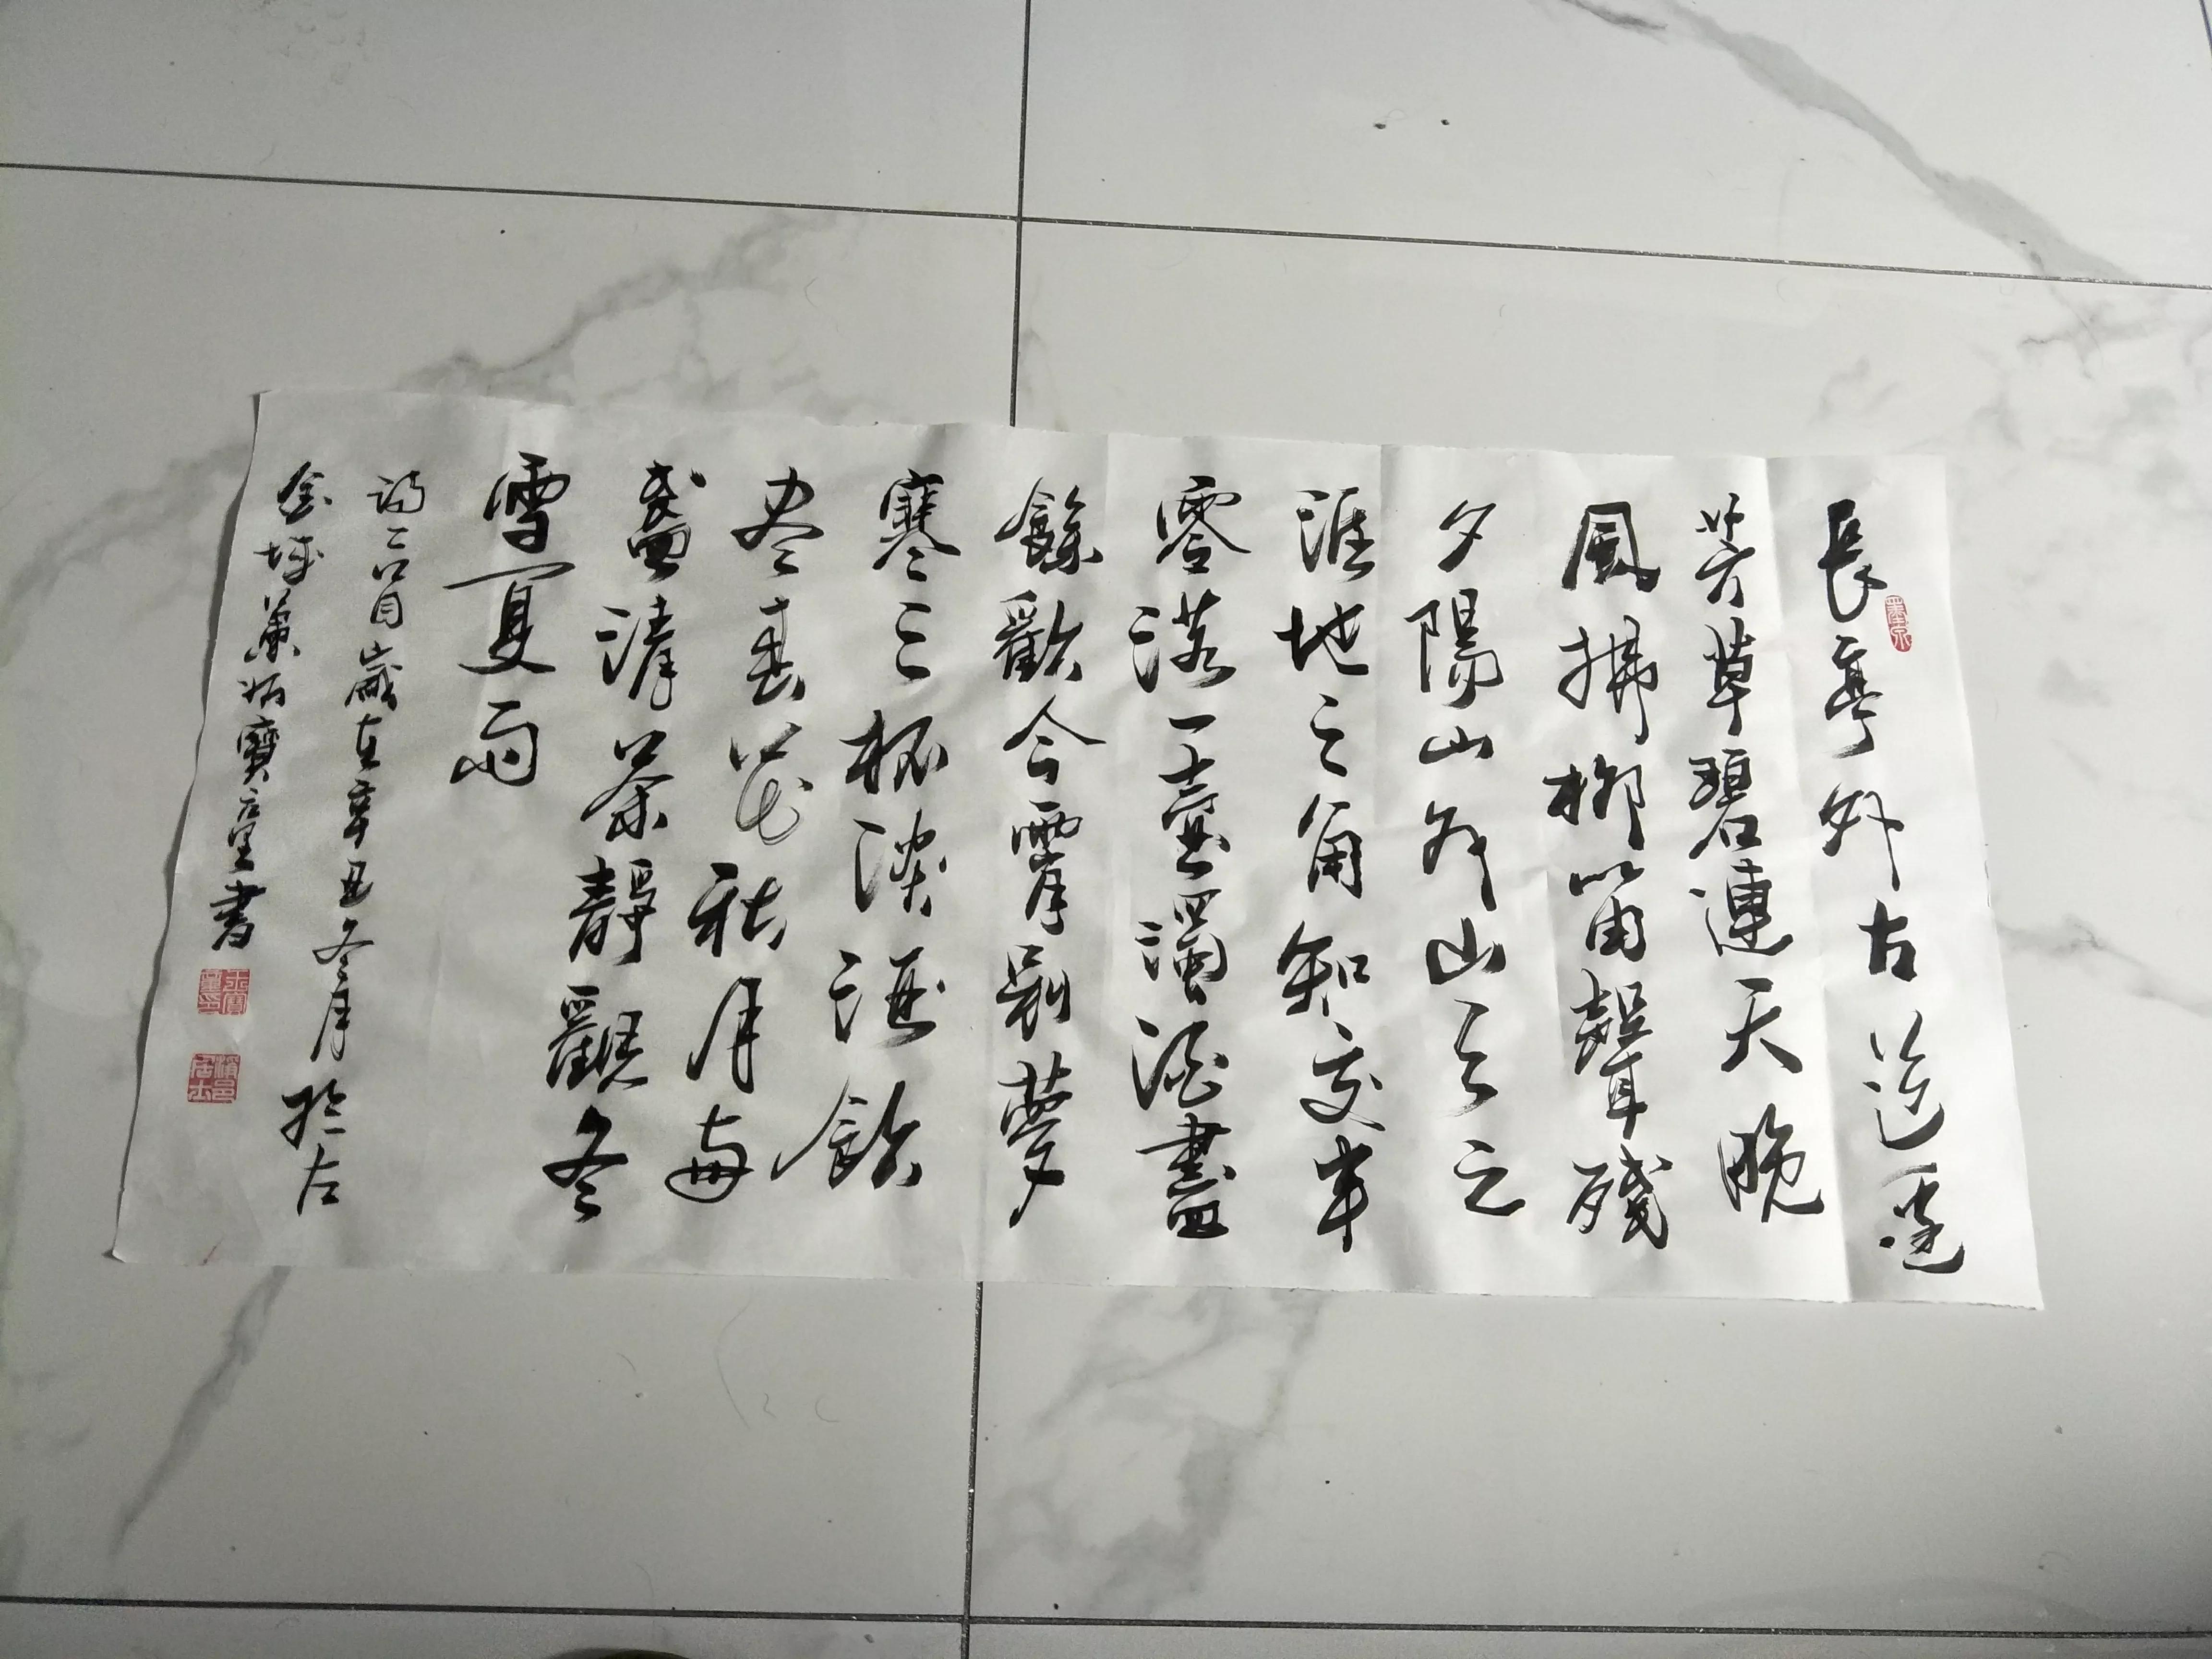 長亭外古道邊
芳草碧連天晚
風拂柳笛聲殘
夕陽山外山天之
涯地之角知交半
零落一壺濁酒盡
餘歡今宵別夢
寒三杯淡酒飲
尽春花秋月每
盞清茶靜觀冬
雪夏雨
詩二首歲在辛丑冬月於古
金城蕭炳寶童書